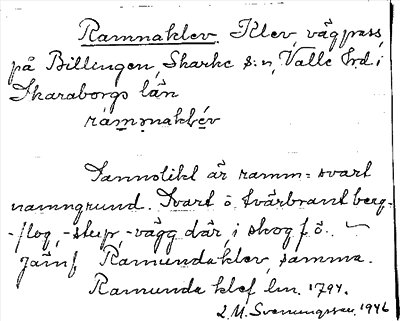 Ramnaklev. Klev, vägpass,
på Billingen, Skarke s:n, Valle hrd i
Skaraborgs län
rámmaklév
Sannolikt är ramm = svart
namngrund. Svart ö. tvärbrant berg-
-flog, -stup, -vägg där, i skog f. ö.
Jämf Ramundaklev, samma.
Ramunda klef lm. 1794.
L. M. Svenungsson, 1946